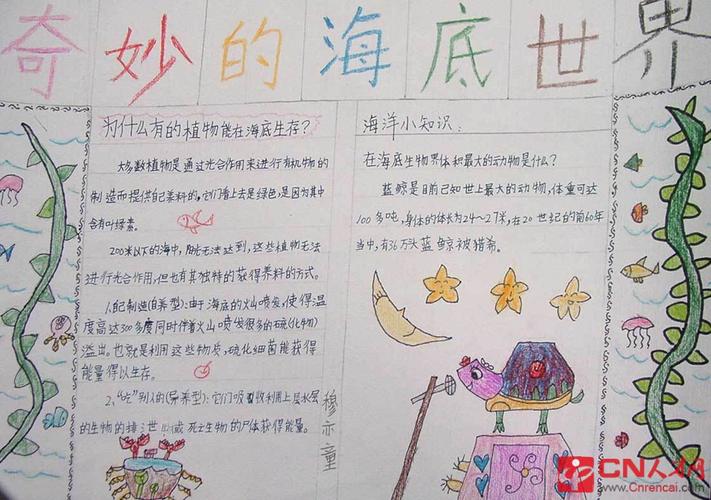 奇妙的海底世界
为什么有的植物能在海底生存?
大多数植物是通过光合作用来进行有机物的
制造而提供自己养料的,它们看上去是绿色,是因为其中
含有叶绿素。
200米以下的海中,阳光无法达到,这些植物无法
进行光合作用,但也有其独特的获得养料的方式。
1.自己制造(自养型):由于海底的火山喷发,使得温
度高达300多度同时伴着火山喷发很多的硫(化物)
溢出。也就是利用这些物质,硫化细菌能获得
能量得以生存。
2."吃"别人的(异养型):它们吸收利用上层水层
的生物的排泄 或死亡生物的尸体获得能量。
穆亦童
海洋小知识:
在海底生物界体积最大的动物是什么?
蓝鲸是目前已知世上最大的动物,体重可达
100多吨,身体的体长为24~27米,在20世纪的前60年
当中,有36万头蓝鲸被猎杀。
CN人才网
www.Cnrencai.com